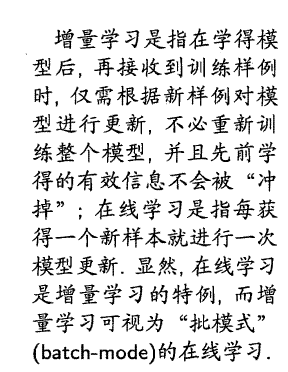 增量学习是指在学得模
型后, 再接收到训练样例
时, 仅需根据新样例对模
型进行更新, 不必重新训
练整个模型, 并且先前学
得的有效信息不会被“冲
掉”; 在线学习是指每获
得一个新样本就进行一次
模型更新. 显然, 在线学习
是增量学习的特例, 而增
量学习可视为“批模式”
(batch-mode)的在线学习.